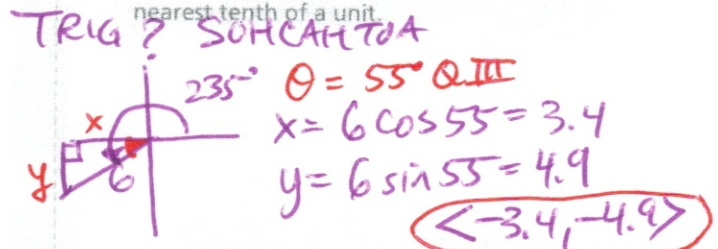 nearest tenth of a unit.
TRIG? SOHCAHTOA
235° θ = 55° Q III
x x = 6 cos 55 = 3.4
y 6 y = 6 sin 55 = 4.9
<-3.4, -4.9>